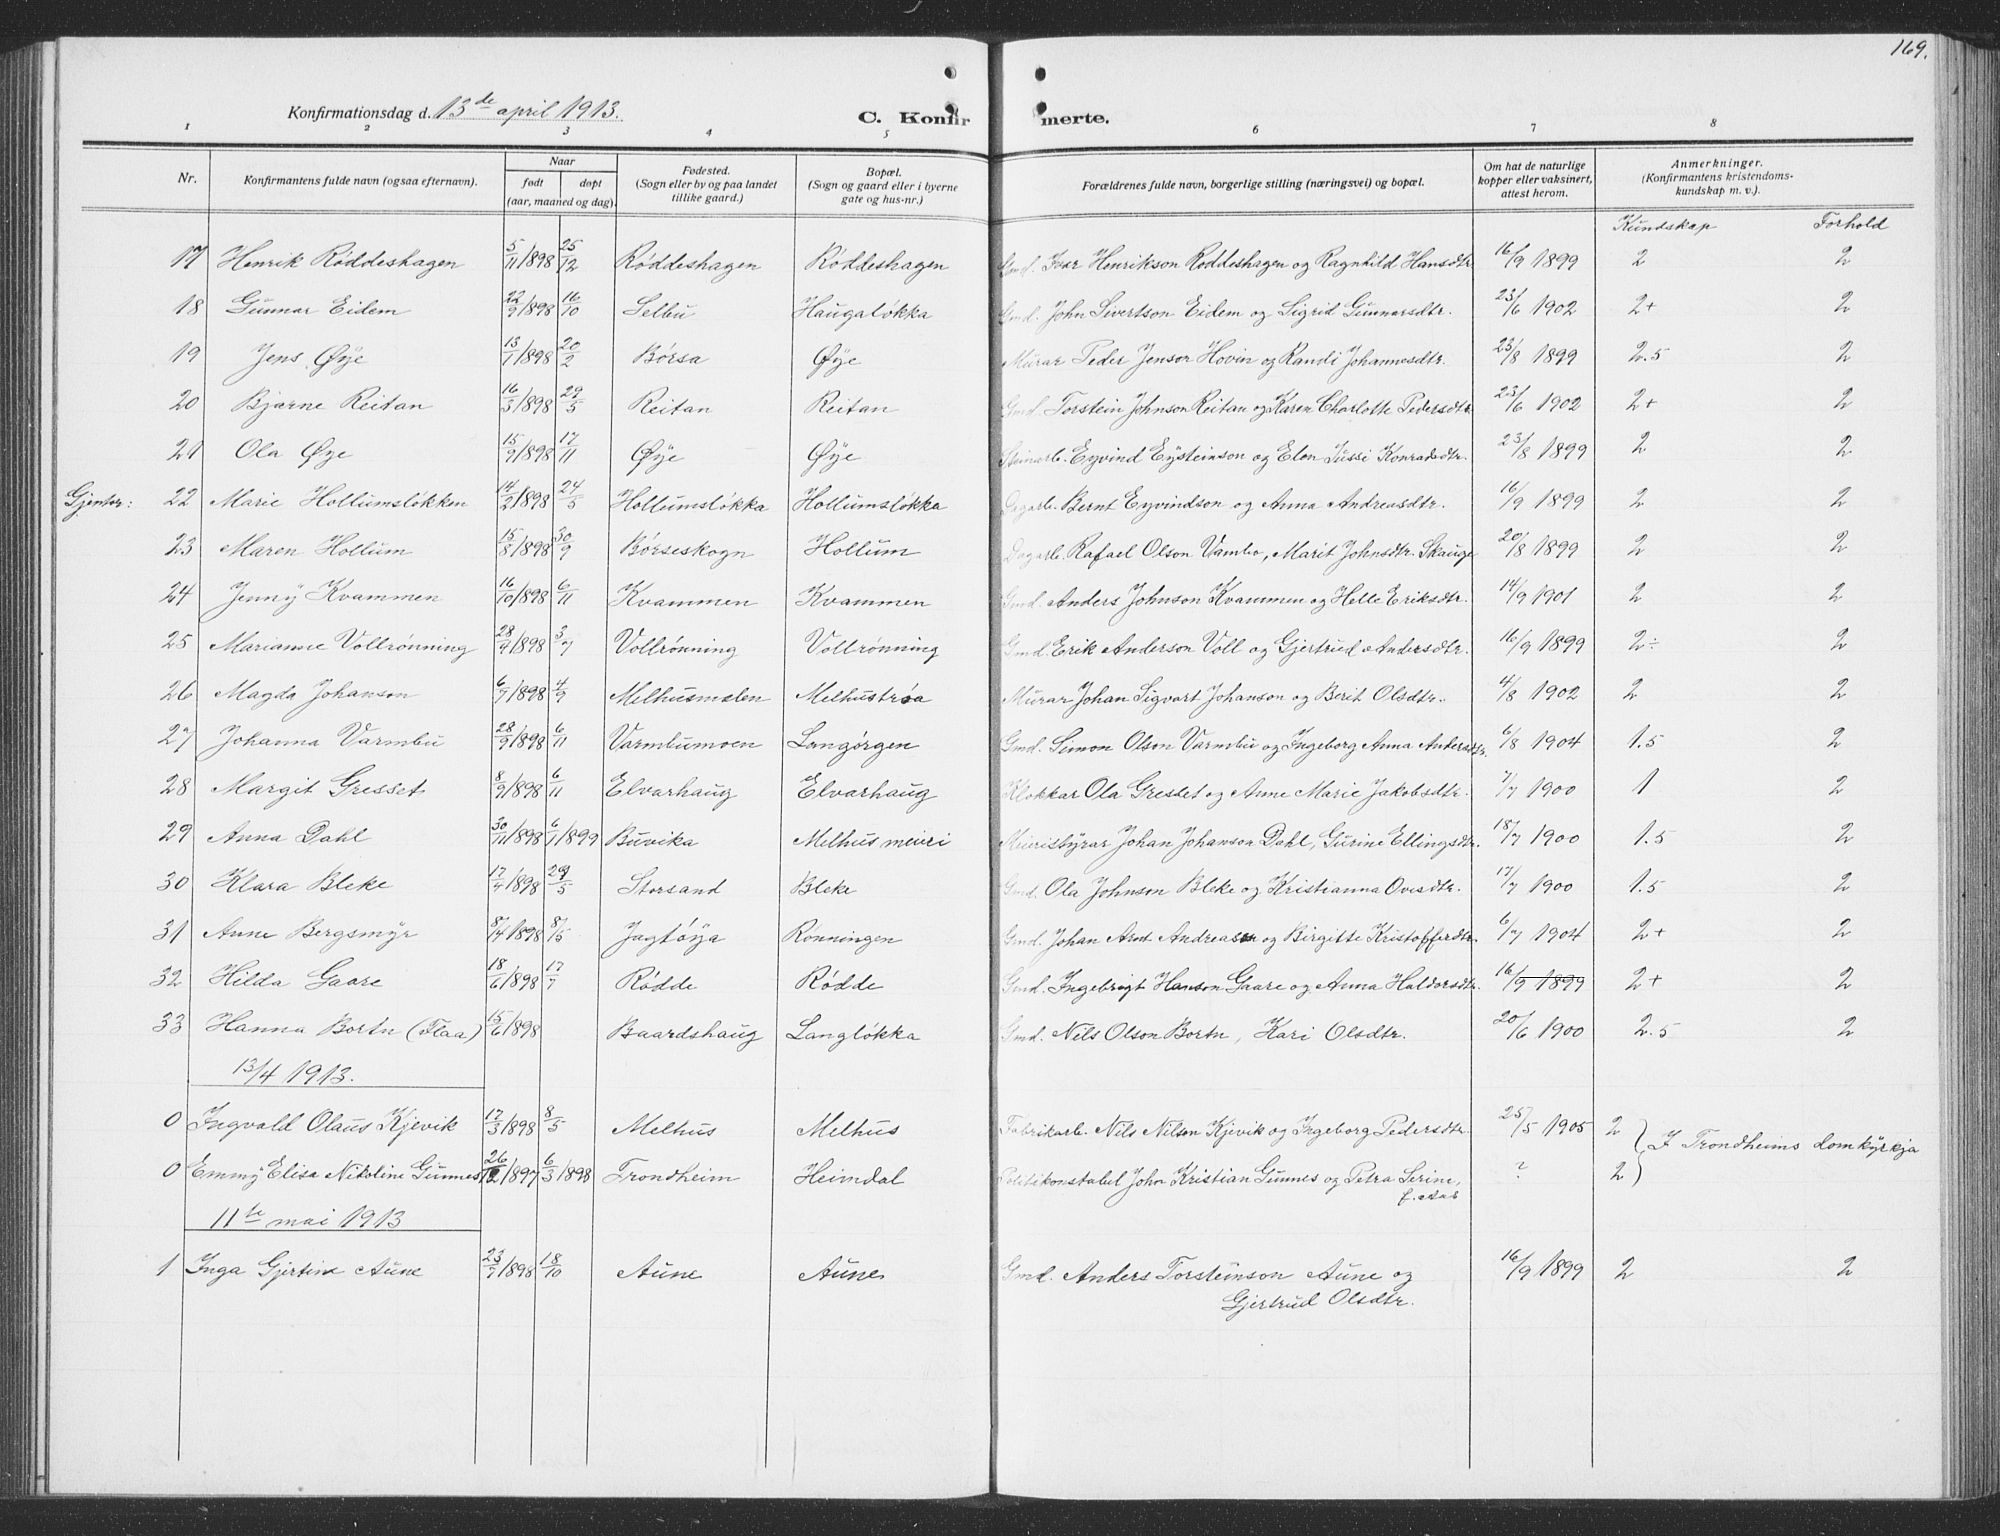 169.
Konfirmationsdag d. 13de april 1913.
C. Konfirmerte.
1 2 3 4 5 6 7 8
Nr. Konfirmantens fulde navn (ogsaa efternavn). Naar født døpt (aar, maaned og dag). Fødested. (Sogn eller by og paa landet tillike gaard.) Bopæl. (Sogn og gaard eller i byerne gate og hus-nr.) Forældrenes fulde navn, borgerlige stilling (næringsvei) og bopæl. Om hat de naturlige kopper eller vaksinert, attest herom. Anmerkninger. (Konfirmantens kristendomskundskap m. v.).
Kundskap Forhold
17 Henrik Røddeshagen 5/11 1898 25/12 Røddeshagen Røddeshagen Gmd. Ivar Henrikson Røddeshagen og Ragnhild Hansdtr. 16/9 1899 2 2
18 Gunnar Eidem 22/9 1898 16/10 Selbu Haugaløkka Gmd. John Sivertson Eidem og Sigrid Gunnarsdtr. 23/6 1902 2+ 2
19 Jens Øye 13/1 1898 20/2 Børsa Øye Murar Peder Jenson Hovin og Randi Johannesdtr. 23/8 1899 2.5 2
20 Bjarne Reitan 16/3 1898 29/5 Reitan Reitan Gmd. Torstein Johnson Reitan og Karen Charlotte Pedersdtr. 23/6 1902 2+ 2
21 Ola Øye 15/9 1898 17/11 Øye Øye Steinarb. Eyvind Eysteinson og Elen Jussi Konradsdtr. 23/8 1899 2 2
Gjentor: 22 Marie Hollumsløkken 14/2 1898 24/5 Hollumsløkka Hollumsløkka Dagarb. Bernt Eyvindson og Anna Andreasdtr. 16/9 1899 2 2
23 Maren Hollum 15/8 1898 30/9 Børseskogn Hollum Dagarb. Rafael Olson Vambo, Marit Johnsdtr. Skauge 20/8 1899 2 2
24 Jenny Kvammen 16/10 1898 6/11 Kvammen Kvammen Gmd. Anders Johnson Kvammen og Helle Eriksdtr. 14/9 1901 2 2
25 Marianne Vollrønning 28/9 1898 3/7 Vollrønning Vollrønning Gmd. Erik Anderson Voll og Gjertrud Andersdtr. 16/9 1899 2÷ 2
26 Magda Johanson 6/7 1898 4/9 Melhusmelen Melhustrøa Murar Johan Sigvart Johanson og Berit Olsdtr. 4/8 1902 2 2
27 Johanna Varmbu 28/9 1898 6/11 Varmbumoen Langørgen Gmd. Simon Olson Varmbu og Ingeborg Anna Andersdtr. 6/8 1904 1.5 2
28 Margit Gresset 8/9 1898 6/11 Elvarhaug Elvarhaug Klokkar Ola Gresset og Anne Marie Jakobsdtr. 7/7 1900 1 2
29 Anna Dahl 30/11 1898 6/1 1899 Buvika Melhus meieri Meieristyrar Johan Johanson Dahl, Gurine Ellingsdtr. 18/7 1900 1.5 2
30 Klara Bleke 17/4 1898 29/5 Storsand Bleke Gmd. Ola Johnson Bleke og Kristianna Ovesdtr. 17/7 1900 1.5 2
31 Anne Bergsmyr 8/4 1898 8/5 Jagtøya Rønningen Gmd. Johan Arnt Andreasen og Birgitte Kristofferdtr. 6/7 1904 2+ 2
32 Hilda Gaare 18/6 1898 17/7 Rødde Rødde Gmd. Ingebrigt Hanson Gaare og Anna Haldorsdtr. 16/9 1899 2+ 2
33 Hanna Bortn (Flaa) 15/6 1898 Baardshaug Langløkka Gmd. Nils Olson Bortn, Kari Olsdtr. 20/6 1900 2.5 2
13/4 1913.
0 Ingvald Olaus Kjevik 17/3 1898 8/5 Melhus Melhus Fabrikarb. Nils Nilson Kjevik og Ingeborg Pedersdtr. 25/5 1905 2
I Trondheims domkyrkja
0 Emmy Elisa Nikoline Gunnes 26/12 1897 6/3 1898 Trondheim Heimdal Politikonstabel John Kristian Gunnes og Petra Serine, ? 2
f. Aas
11te mai 1913
1 Inga Gjertine Aune 23/9 1898 18/10 Aune Aune Gmd. Anders Torsteinson Aune og 16/9 1899 2 2
Gjertrud Olsdtr.